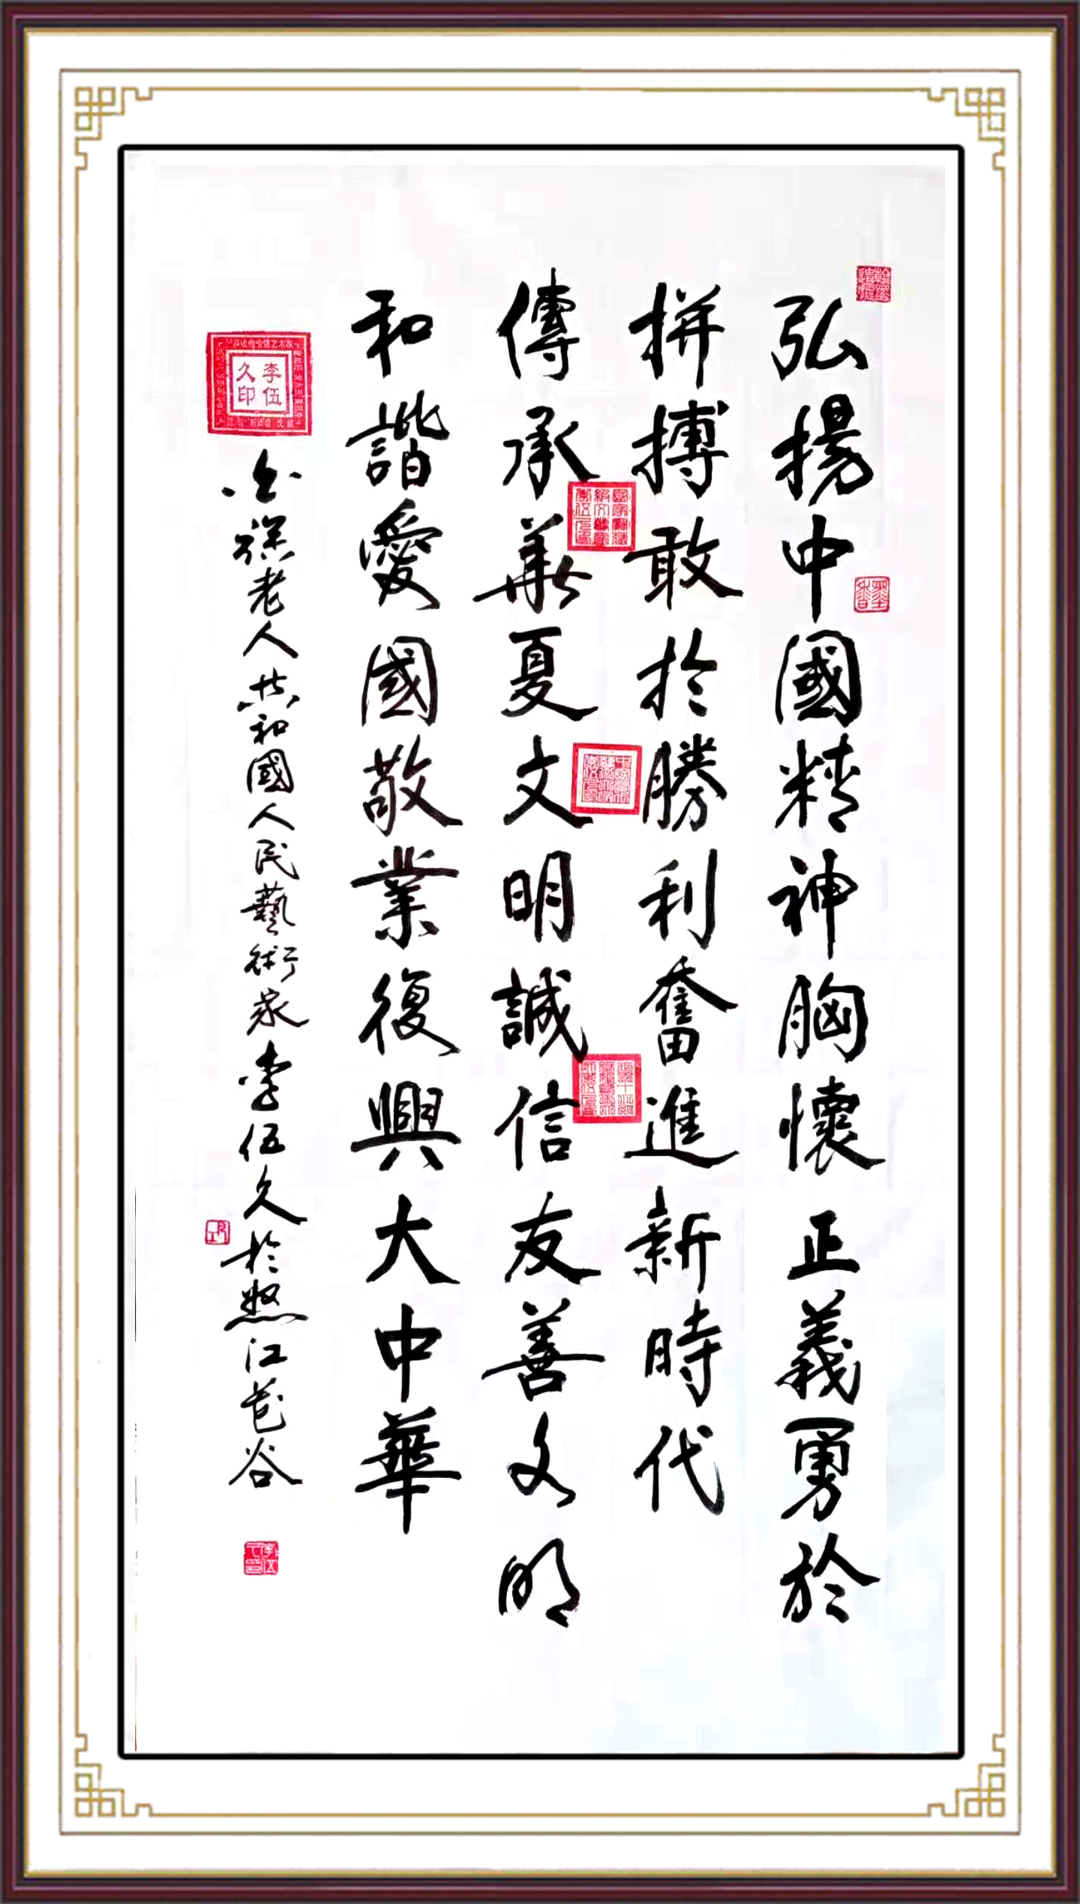 弘揚中國精神胸懷正義勇於
拼搏敢於勝利奮進新時代
傳承華夏文明誠信友善文明
和諧愛國敬業復興大中華
老人共和國人民藝術家李伍久於怒江花谷
李伍
久印